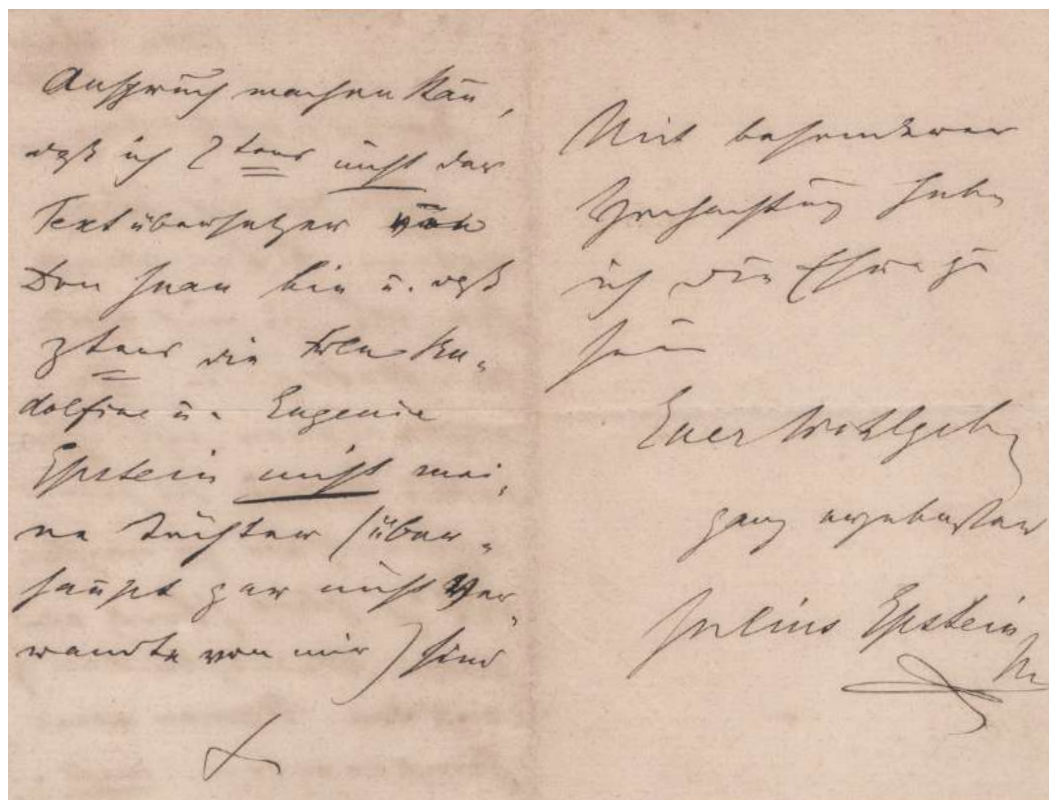 Anspruch machen kañ,
daß ich 2tens nicht der
Textübersetzer von
Don Juan bin u. daß
3tens die Frln Ru-
dolfine u. Eugenie
Epstein nicht mei-
ne Töchter (über-
haupt gar nicht Ver-
wandte von mir) sind
Mit besonderer
Hochachtung habe
ich die Ehre zu
sein
Euer Wohlgeb
ganz ergebenster
Julius Epstein